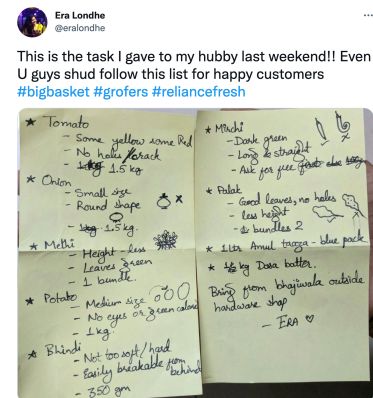 Era Londhe
@eralondhe
This is the task I gave to my hubby last weekend!! Even
U guys shud follow this list for happy customers
#bigbasket #grofers #reliancefresh
★ Tomato
- Some yellow some Red
- No holes/crack
- 1.5 kg
★ Onion
- Small size
- Round shape
- 1.5 kg.
★ Methi
- Height - less
- Leaves green
- 1 bundle.
★ Potato
- Medium size
- No eyes or green color
- 1 kg.
★ Bhindi
- Not too soft/hard
- Easily breakable from
behind
- 350 gm
★ Mirchi
- Dark green
- Long & straight
- Ask for free
★ Palak
- Good leaves, no holes
- less height
- bundles 2
★ 1 ltr Amul taaza - blue pack
★ kg Dosa batter.
Bring from bhajiwala outside
hardware shop
- ERA ♡